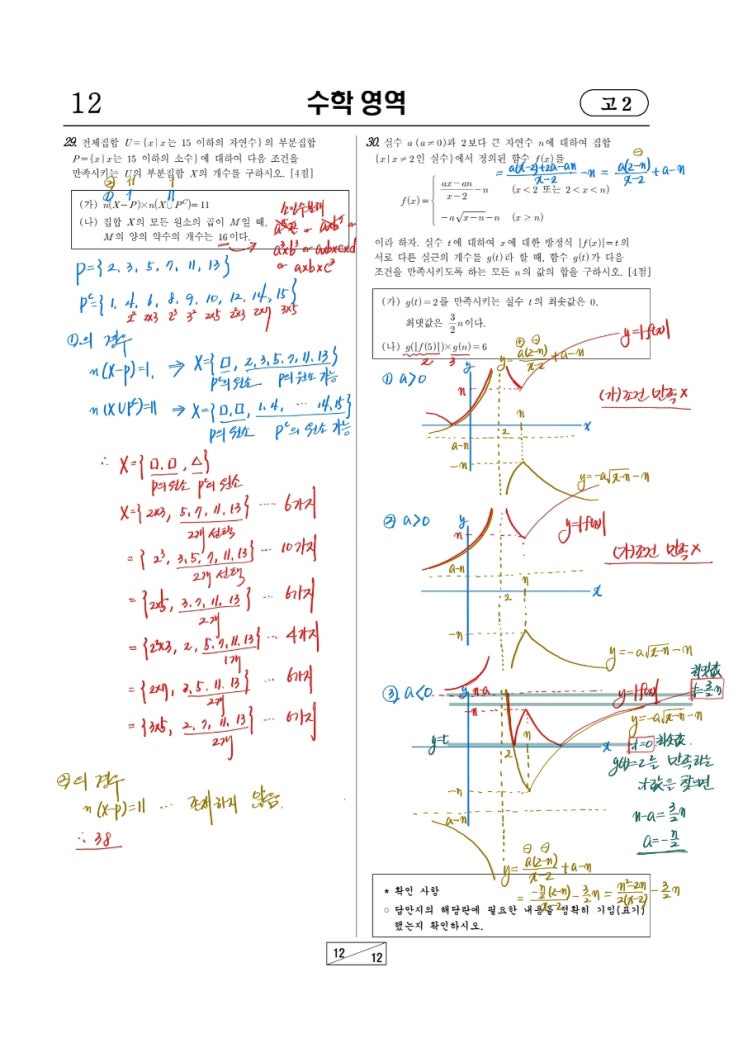 12
수학 영역
고 2
29. 전체집합 U={x|x는 15 이하의 자연수}의 부분집합
P={x|x는 15 이하의 소수}에 대하여 다음 조건을
만족시키는 U의 부분집합 X의 개수를 구하시오. [4점]
② 11 1
① 1 11
(가) n(X-P)×n(X∪Pᶜ)=11
(나) 집합 X의 모든 원소의 곱이 M일 때,
M의 양의 약수의 개수는 16이다.
소인수분해
a³b³ or abxcxd
or axbxc³
P={2, 3, 5, 7, 11, 13}
Pᶜ={1, 4, 6, 8, 9, 10, 12, 14, 15}
2² 2x3 2³ 3² 2x5 2²x3 2x7 3x5
①의 경우
n(X-P)=1, ⇒ X={□, 2, 3, 5, 7, 11, 13}
Pᶜ의 원소 P의 원소 가능
n(X∪Pᶜ)=11 ⇒ X={□, □, 1, 4, ⋯ 14, 15}
P의 원소 Pᶜ의 원소 가능
∴ X={□, □, △}
P의 원소 Pᶜ의 원소
X={2x3, 5, 7, 11, 13} ⋯ 6가지
2개 선택
={2³, 3, 5, 7, 11, 13} ⋯ 10가지
2개 선택
={2x5, 3, 7, 11, 13} ⋯ 6가지
2개
={2²x3, 2, 5, 7, 11, 13} ⋯ 4가지
1개
={2x7, 3, 5, 11, 13} ⋯ 6가지
2개
={3x5, 2, 7, 11, 13} ⋯ 6가지
2개
②의 경우
n(X-P)=11 ⋯ 존재하지 않음.
∴ 38
30. 실수 a (a≠0)과 2보다 큰 자연수 n에 대하여 집합
{x|x≠2인 실수}에서 정의된 함수 f(x)를
= a(x-2)+2a-an / x-2 -n = a(2-n) / x-2 +a-n
f(x)= { (ax-an)/(x-2) -n (x<2 또는 2<x<n)
-a√(x-n)-n (x≥n)
이라 하자. 실수 t에 대하여 x에 대한 방정식 |f(x)|=t의
서로 다른 실근의 개수를 g(t)라 할 때, 함수 g(t)가 다음
조건을 만족시키도록 하는 모든 n의 값의 합을 구하시오. [4점]
(가) g(t)=2를 만족시키는 실수 t의 최솟값은 0,
최댓값은 3/2 n이다.
(나) g(|f(5)|)×g(n)=6
2 3
y=|f(x)|
y= a(2-n) / x-2 +a-n
① a>0
y
n
n
(가)조건 만족 X
x
2
a-n
-n
y=-a√(x-n)-n
② a>0
y
n
y=|f(x)|
(가)조건 만족 X
a-n
n
2
x
-n
y=-a√(x-n)-n
③ a<0
y
n-a
n
y=|f(x)|
최댓값
t=3/2 n
y=-a√(x-n)-n
y=t
2
n
x
t=0 최솟값
g(t)=2를 만족하는
t값을 찾으면
-n
n-a=3/2 n
a-n
a=-n/2
y= a(2-n) / x-2 +a-n
= -n/2(2-n) / x-2 -3/2 n = n²-2n / 2(x-2) -3/2 n
* 확인 사항
○ 답안지의 해당란에 필요한 내용을 정확히 기입(표기)
했는지 확인하시오.
12
12